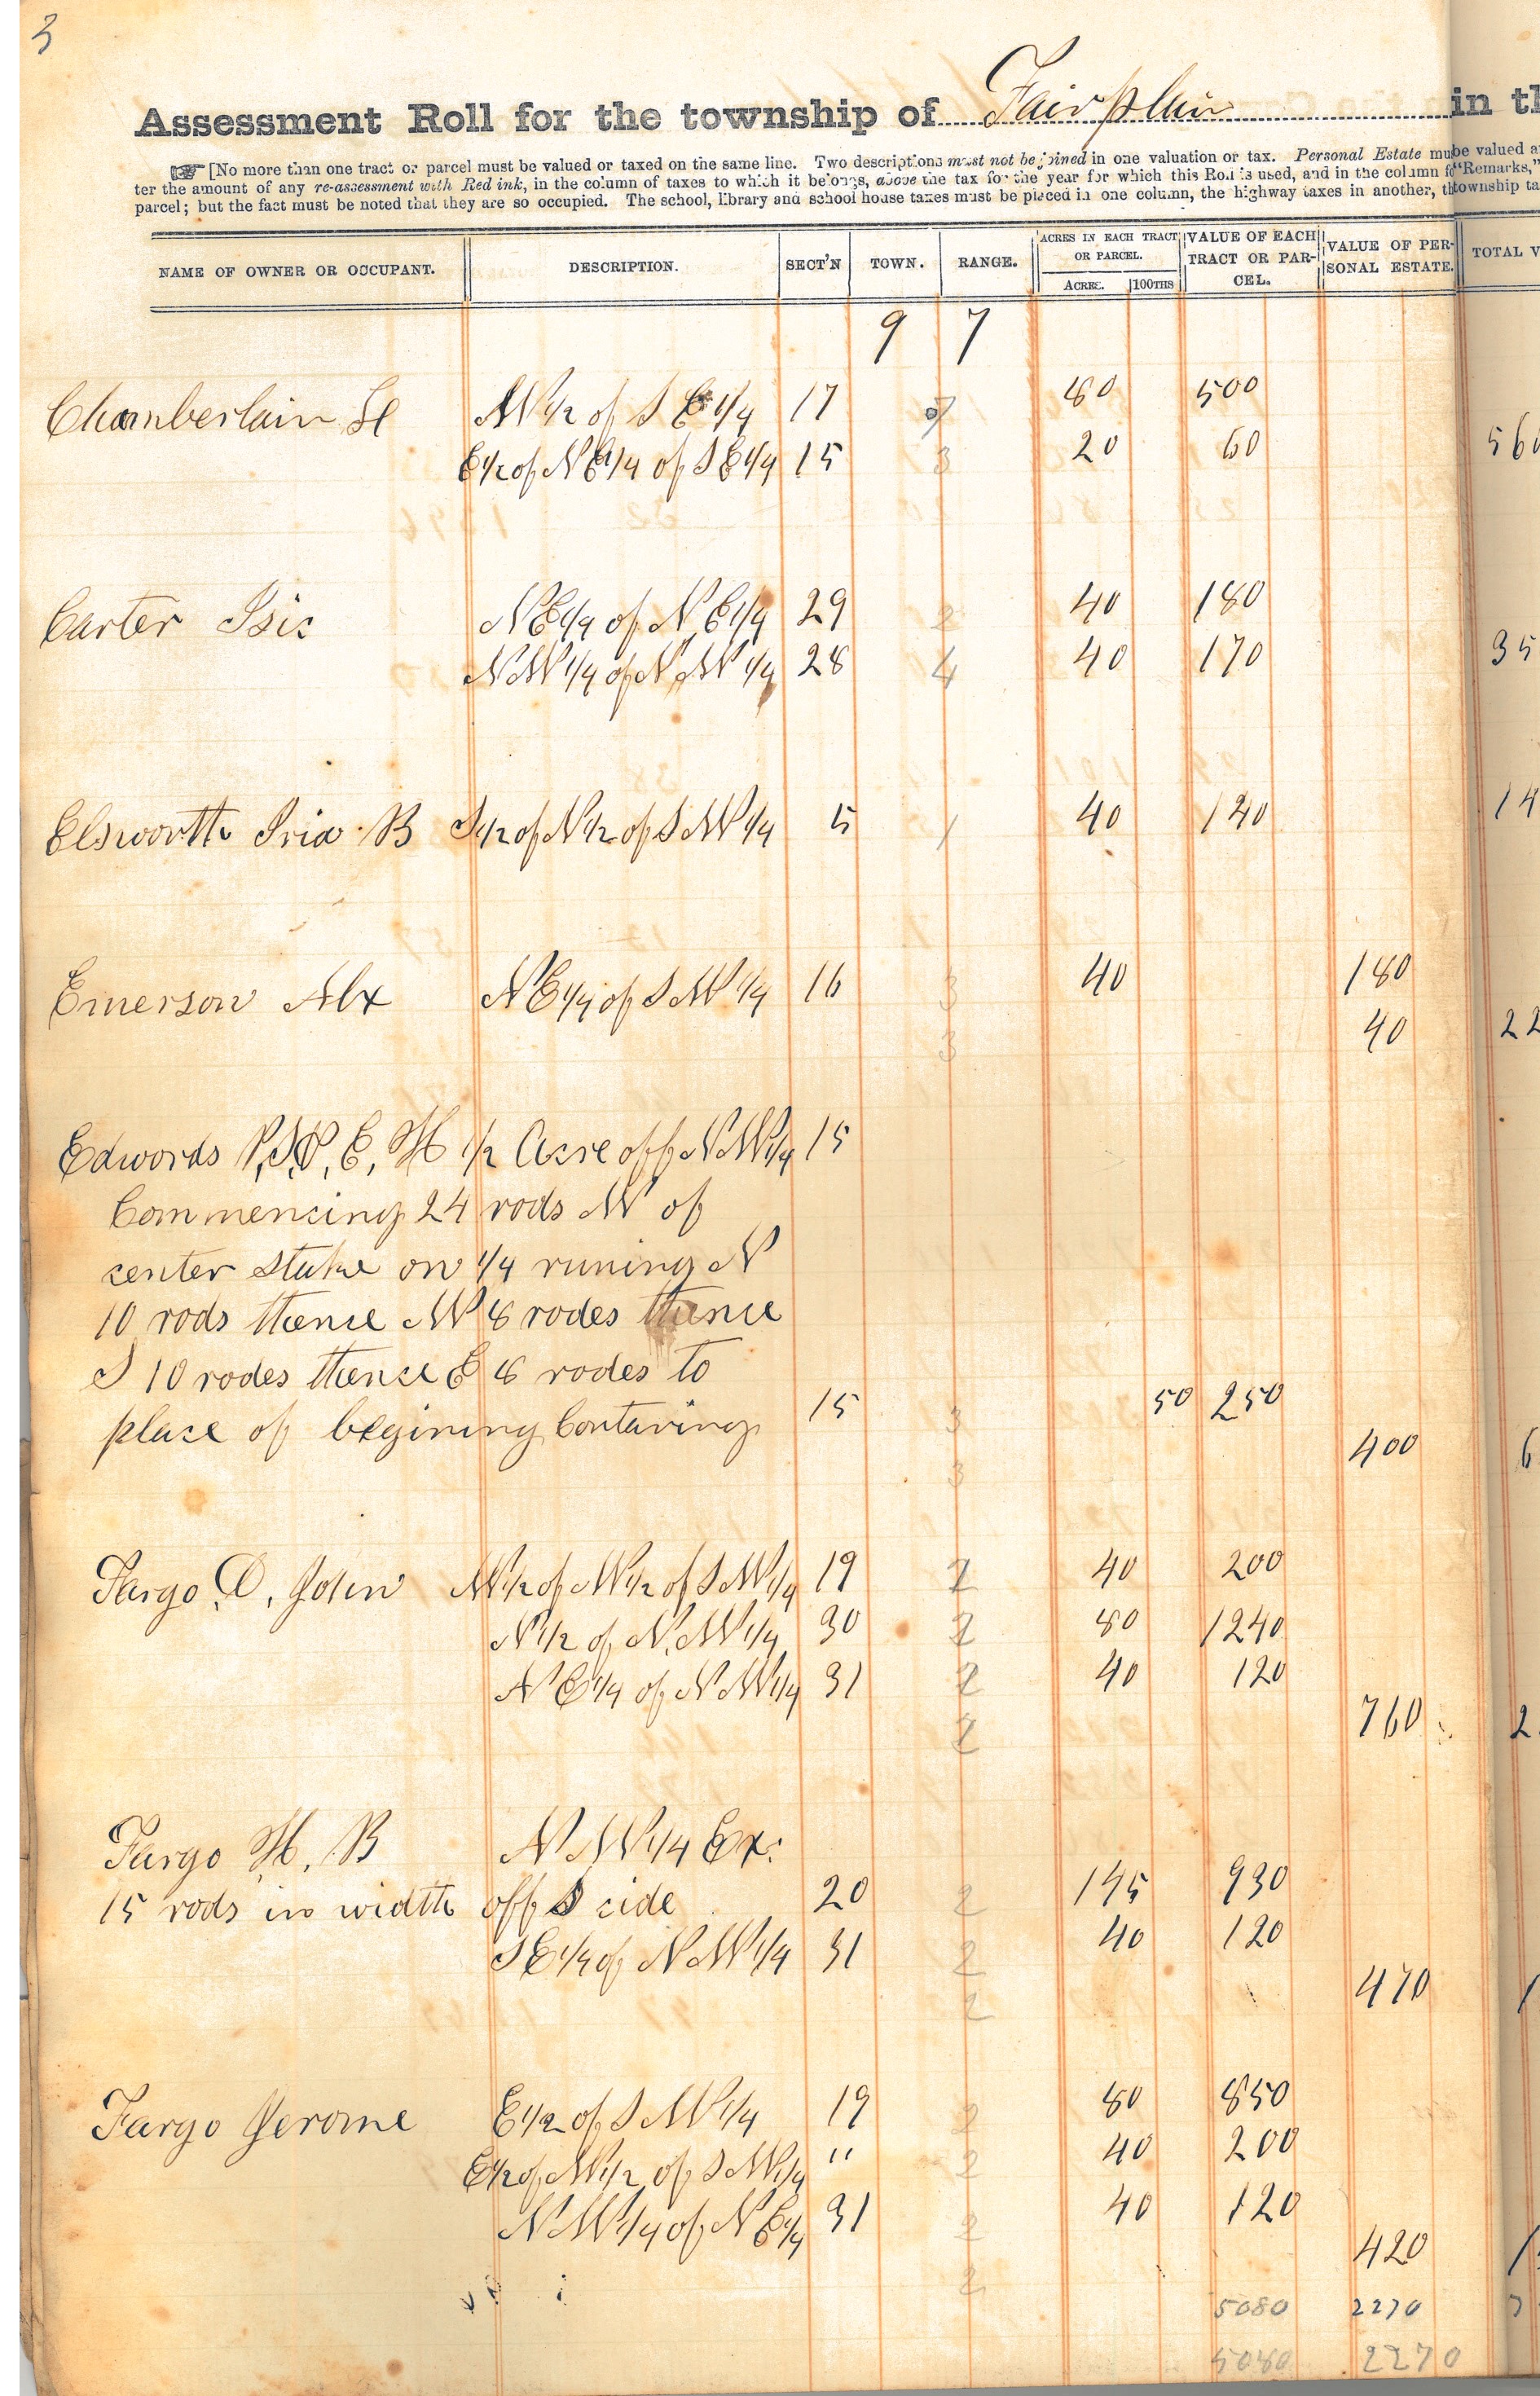 3
Assessment Roll for the township of Fairplain in th
[No more than one tract or parcel must be valued or taxed on the same line. Two descriptions must not be joined in one valuation or tax. Personal Estate mu be valued a
ter the amount of any re-assessment with Red ink, in the column of taxes to which it belongs, above the tax for the year for which this Roll is used, and in the column fo "Remarks,"
parcel; but the fact must be noted that they are so occupied. The school, library and school house taxes must be placed in one column, the highway taxes in another, th township ta
NAME OF OWNER OR OCCUPANT. DESCRIPTION. SECT'N TOWN. RANGE. ACRES IN EACH TRACT OR PARCEL. ACRES. 100THS VALUE OF EACH TRACT OR PARCEL. VALUE OF PERSONAL ESTATE. TOTAL V
9 7
Chamberlain W 1/2 of S E 1/4 17 7 80 500
E 1/2 of N E 1/4 of S E 1/4 15 3 20 60 560
Carter Isic N E 1/4 of N E 1/4 29 2 40 180
N W 1/4 of N W 1/4 28 4 40 170 35
Elsworth Iria B S 1/2 of N 1/2 of S W 1/4 5 1 40 140 14
Emerson Alx N E 1/4 of S W 1/4 16 3 40 180
3 40 22
Edwords P, S, P, E, H 1/2 Acre off N W 1/4 15
Commencing 24 rods W of
center stake on 1/4 runing N
10 rods thence W 8 rodes thence
S 10 rodes thence E 8 rodes to
place of begining Contaving 15 3 50 250
3 400 6
Fargo D, John W 1/2 of W 1/2 of S W 1/4 19 2 40 200
N 1/2 of N, W 1/4 30 2 80 1240
N E 1/4 of N W 1/4 31 2 40 120
2 760 2
Fargo H, B N W 1/4 Ex:
15 rods in width off S side 20 2 145 930
S E 1/4 of N W 1/4 31 2 40 120
2 470 1
Fargo Jerome E 1/2 of S W 1/4 19 2 80 850
E 1/2 of W 1/2 of S W 1/4 " 2 40 200
N W 1/4 of N E 1/4 31 2 40 120
2 420 1
5080 2270 7
5080 2270